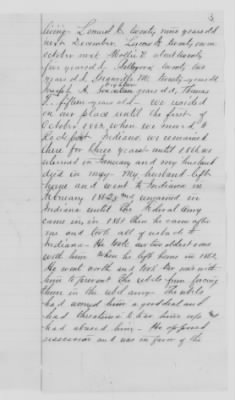 5
living. Leonard C. twenty nine years old
next December, Lucas G twenty seven
October next Mollie E. about twenty
five years old, twenty two
years old, Granville M. twenty years old
Joseph A. eighteen years old, Thomas
T. fifteen years old — we resided
on our place until the first of
October 1863, when we moved to
Rockport Indiana. we remained
there for three years until 1866 we
returned in January and my husband
died in May. My husband left
home and went to Indiana in
February 1862 and remained in
Indiana until the Federal Army
came in in 1863 then he came after
me and took all of us back to
Indiana. He took our two oldest sons
with him when he left home in 1862.
He went north and took our sons with
him to prevent the rebels from forcing
them in the rebel army. The rebels
had worried him a good deal and
had threatened to him and
had abused him. He opposed
secession and was in favor of the